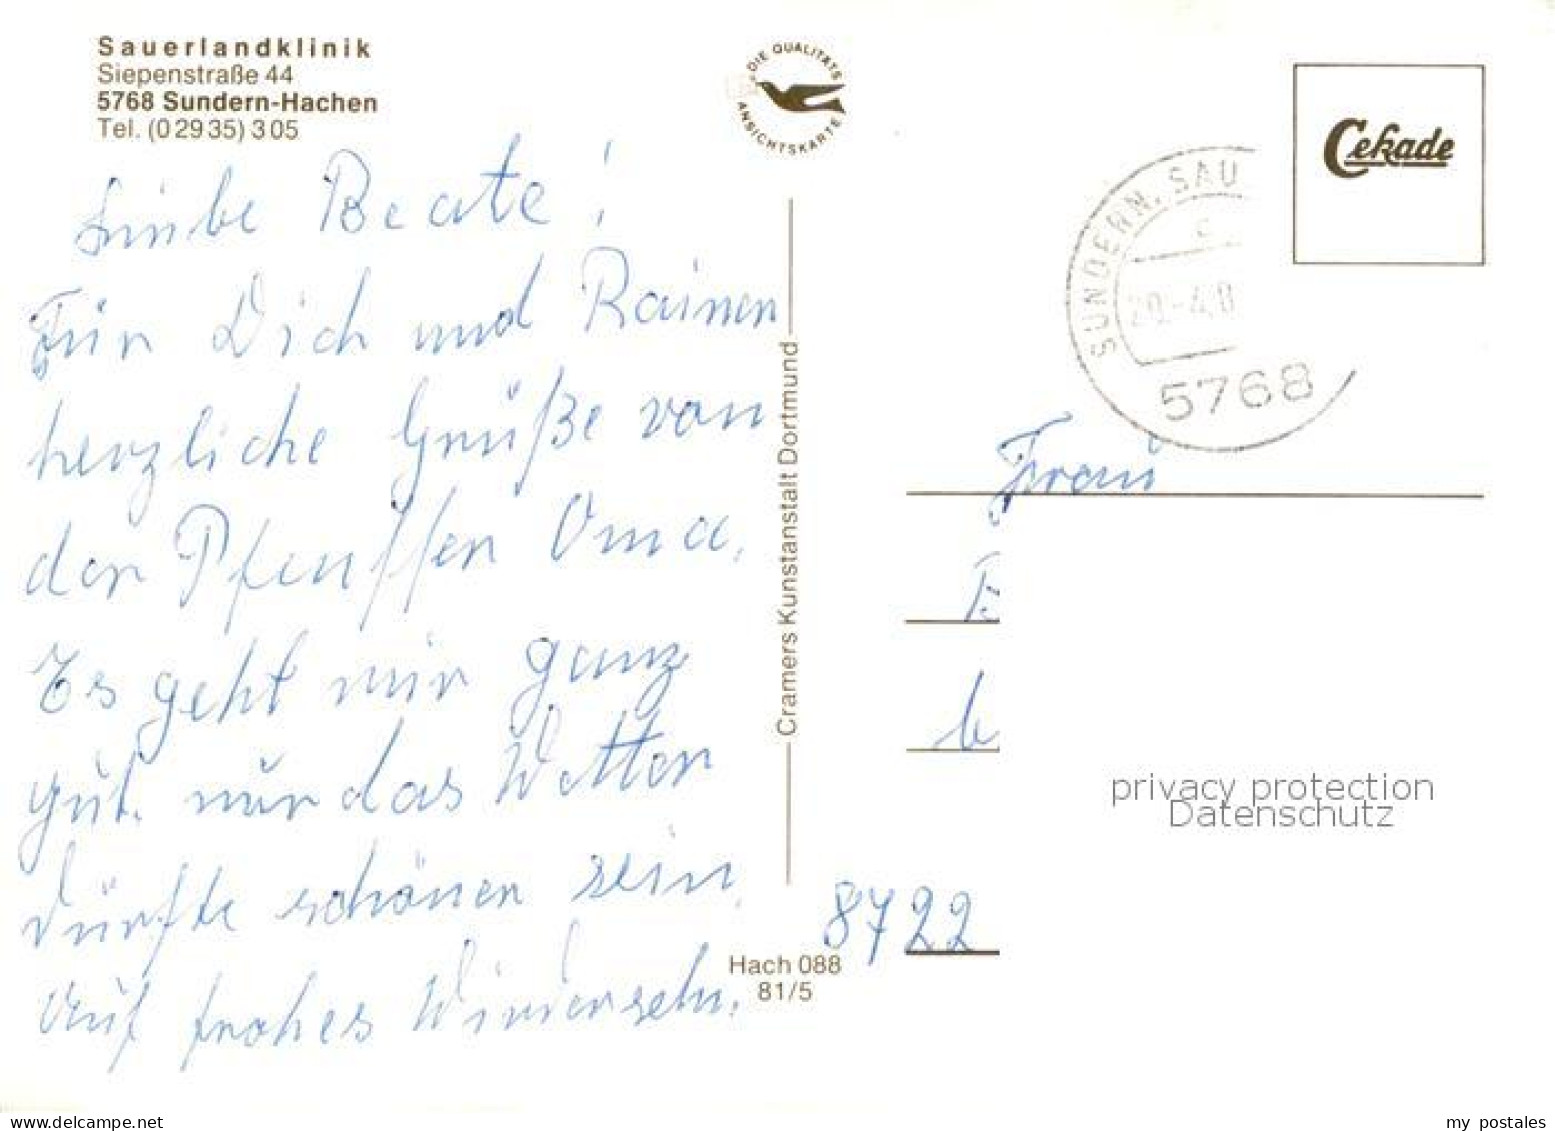 Sauerlandklinik
Siepenstraße 44
5768 Sundern-Hachen
Tel. (0 29 35) 3 05
DIE QUALITÄTS
ANSICHTSKARTE
Cekade
SUNDERN, SAU
5768
Liebe Beate!
Für Dich und Rainer
herzliche Grüße von
der Oma.
Es geht mir ganz
gut. nur das Wetter
dürfte schöner sein.
Auf frohes Wiedersehn.
Cramers Kunstanstalt Dortmund
Hach 088
81/5
Frau
8722
privacy protection
Datenschutz
my postales